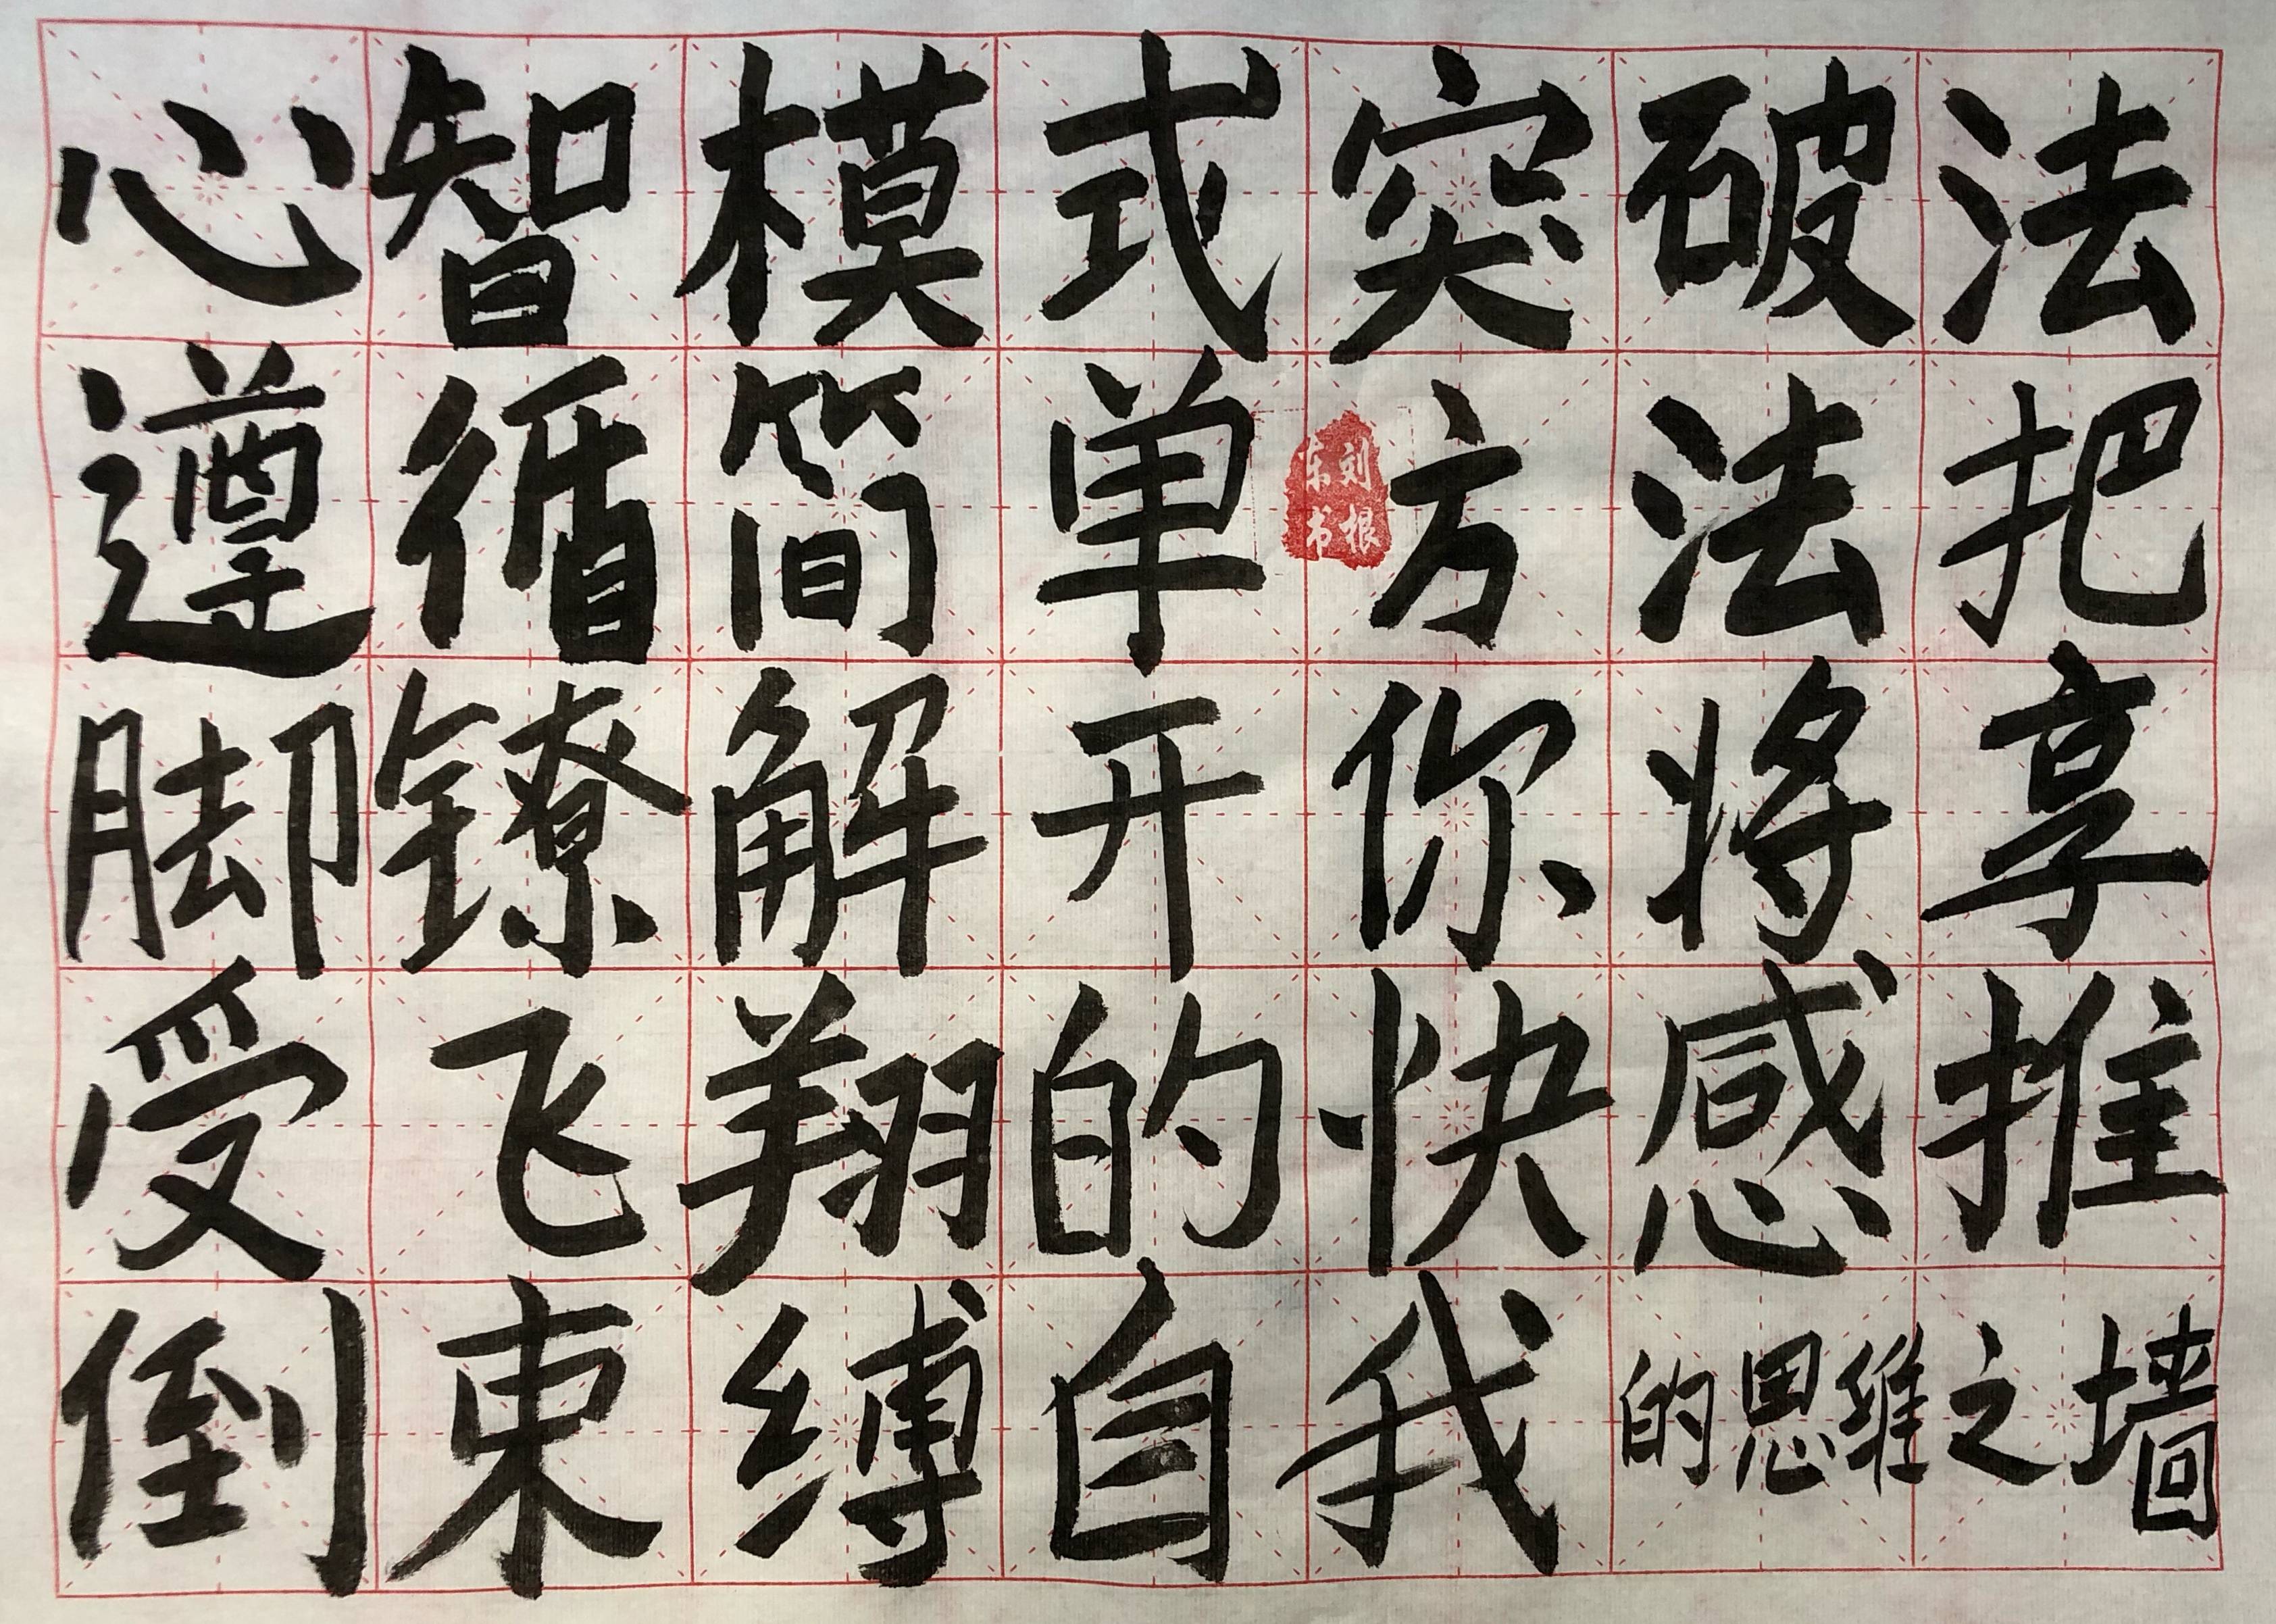 心智模式突破法
遵循简单方法把
脚镣解开你将享
受飞翔的快感推
倒束缚自我的思维之墙
刘根
东书